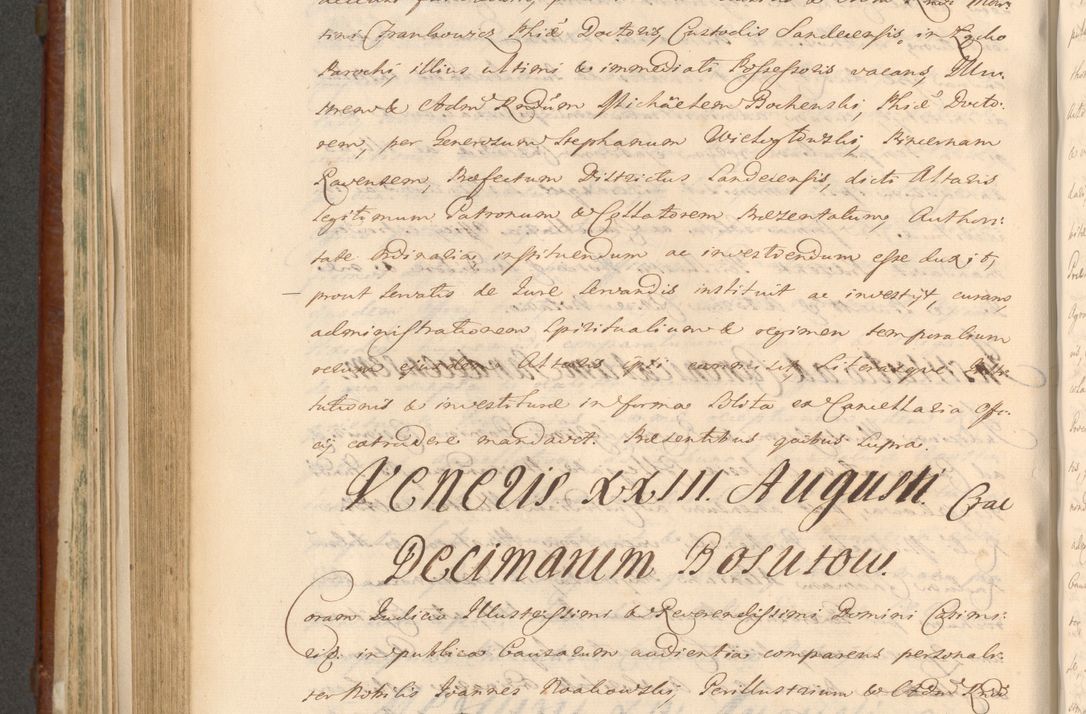 tini Frankowicz Phiæ Doctoris, Custodis Sandecensis, in
Parochi illius ultimi & immediati Possessoris vacans, Illu-
strem & Adm Rndum Michäelem Bochenski, Phiæ Docto-
rem, per Generosum Stephanum Wielogłowski, Pincernam
Ravensem, Præfectum Districtus Sandecensis, dicti Altaris
legitimum Patronum & Collatorem Præsentatum, Authori-
tate Ordinaria instituendum ac investiendum esse duxit,
prout servatis de Jure servandis instituit ac investijt, curam,
administrationem Spiritualium & regimen temporalium
rerum ejusdem Altaris ipsi commisit, Literasque Insti-
tutionis & investituræ in forma solita ex Cancellaria Offi-
cij extradere mandavit. Præsentibus quibus supra.
Veneris XXIII. Augusti. Crac
Decimarum Bosutow.
Coram Judicio Illustrissimi & Reverendissimi Domini Casimi-
ri & in publica Causarum audientia comparens personali-
ter Nobilis Joannes Roakowski, Perillustrium & Adm Rnd